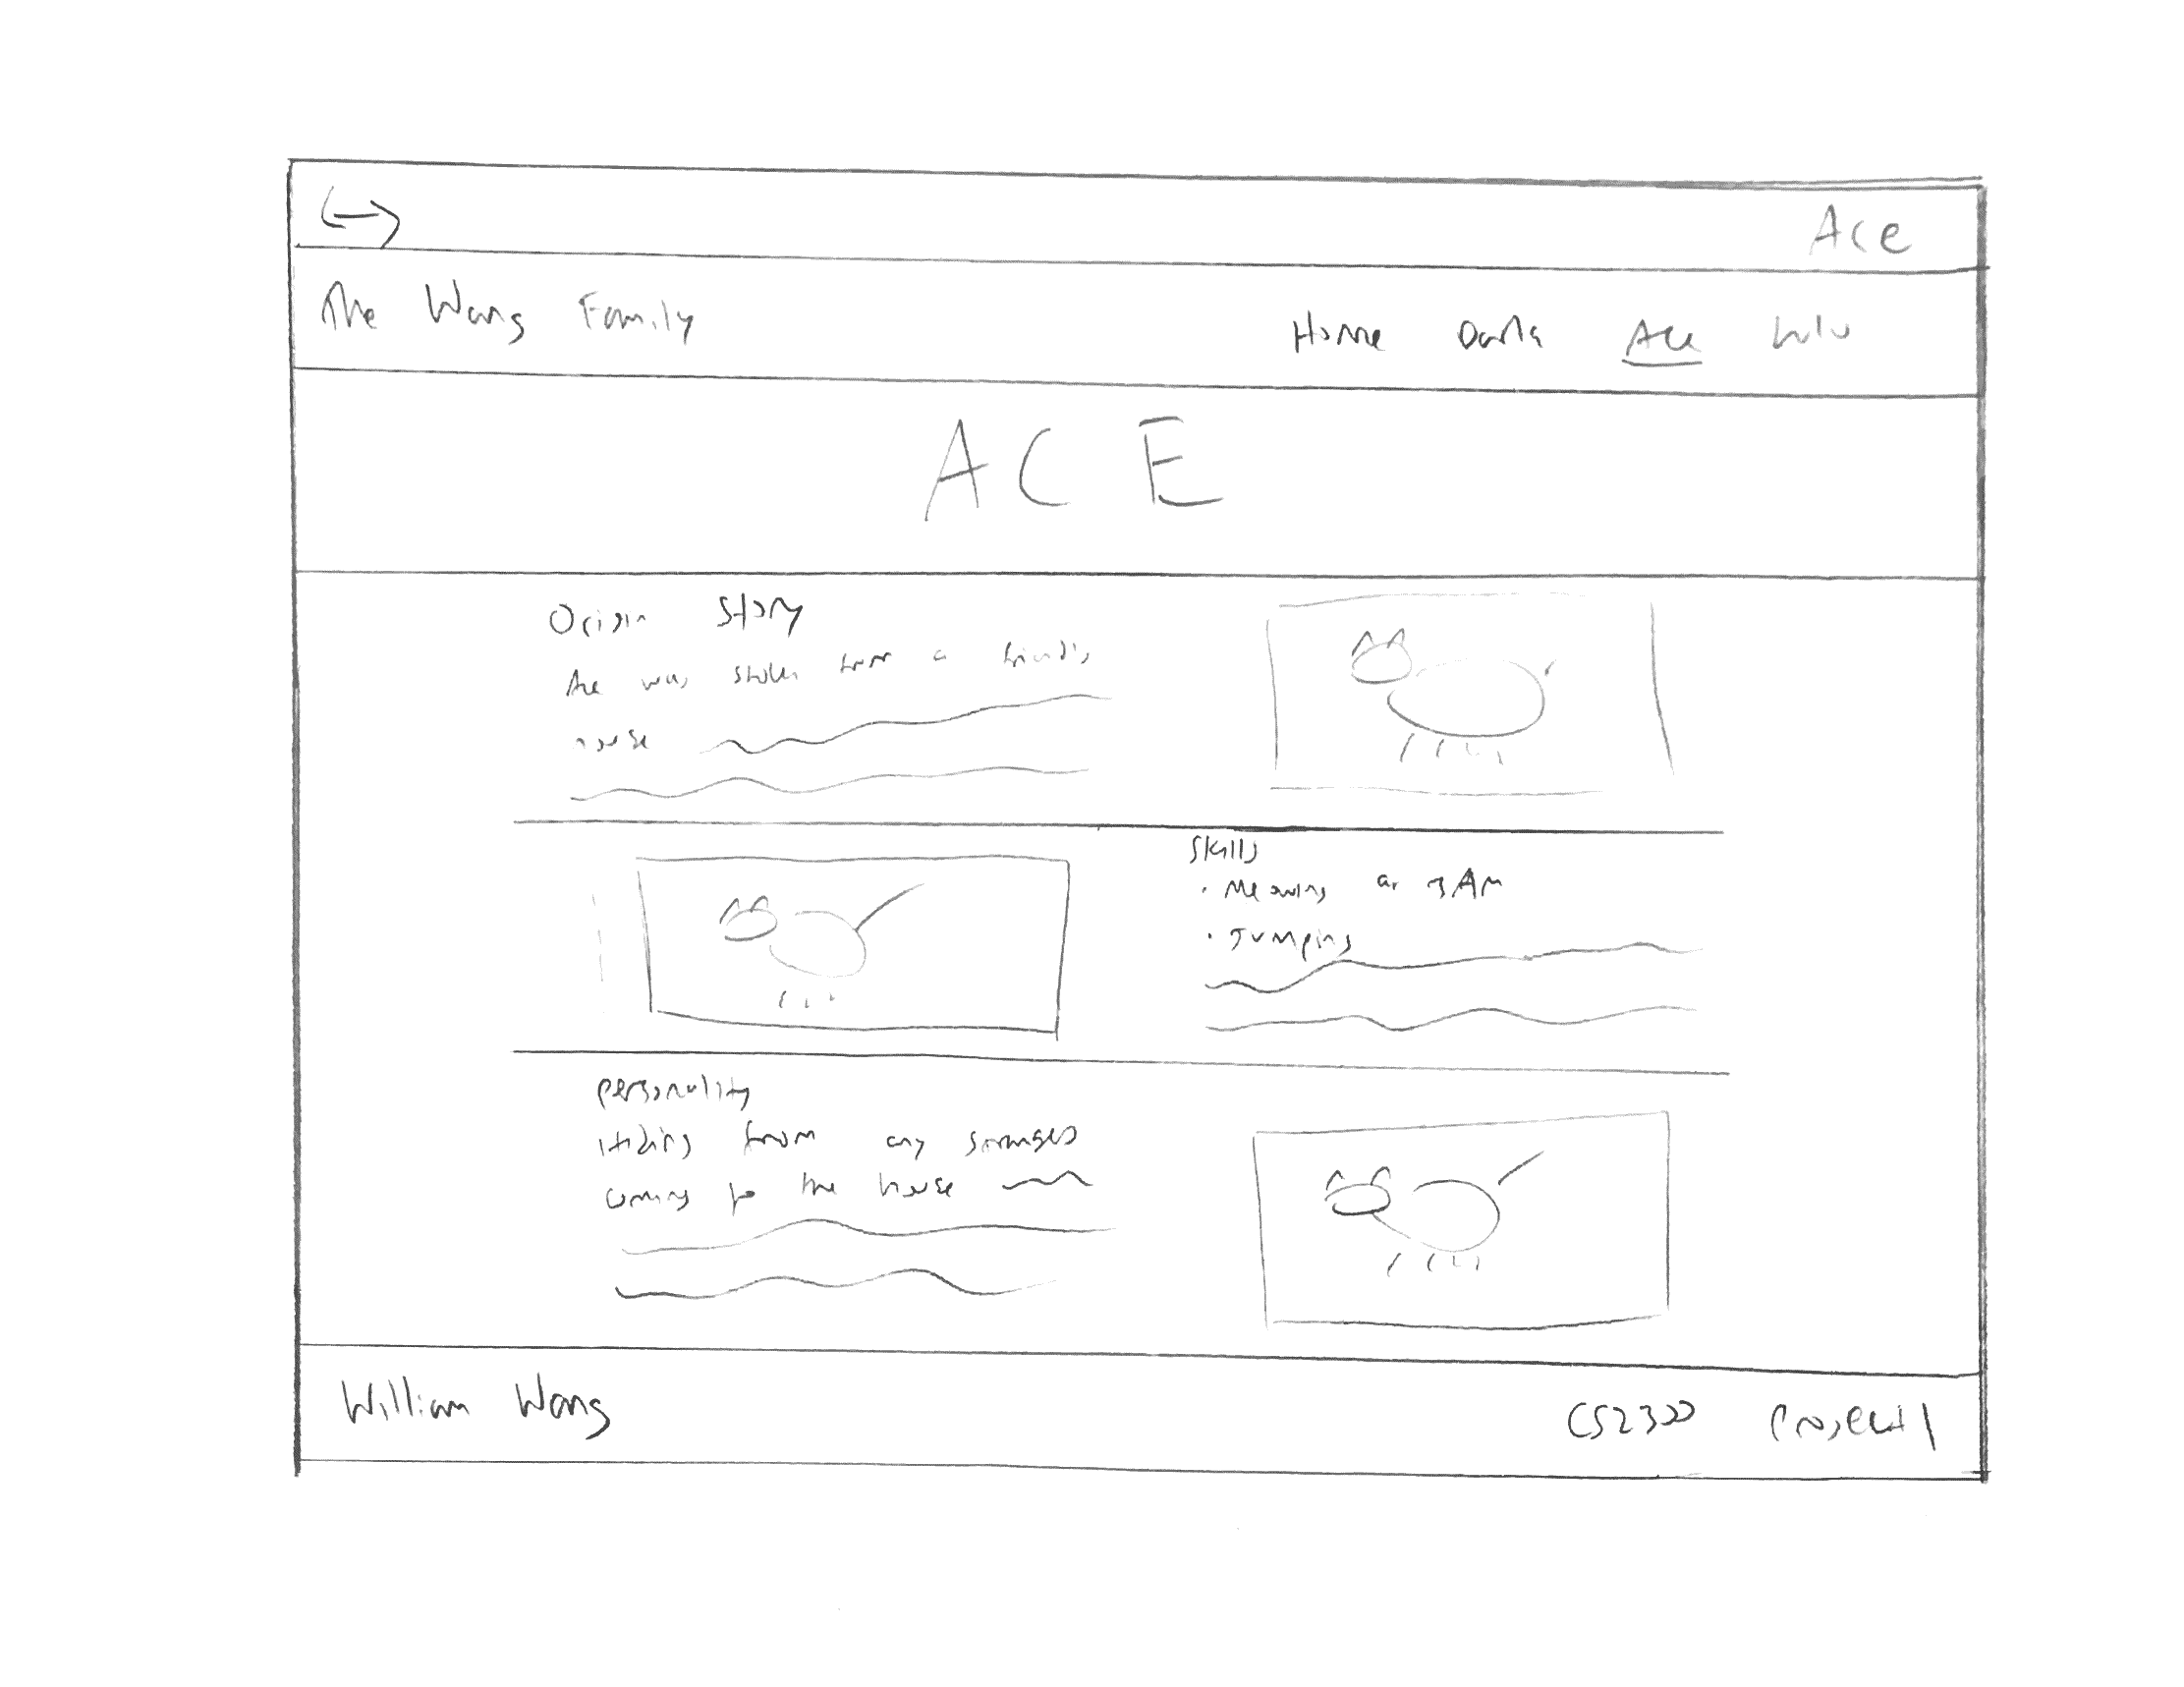 Ace
The Wang Family
Home Darla Ace Lulu
ACE
Origin Story
Ace was stolen from a friend's
house
Skills
• Meowing at 3AM
• Jumping
Personality
Hiding from any strangers
coming to the house
William Wang
CS2300 Project 1